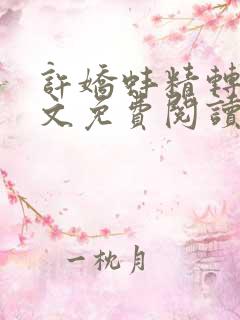 許嬌蚌精轉
文免費閱讀
一枕月